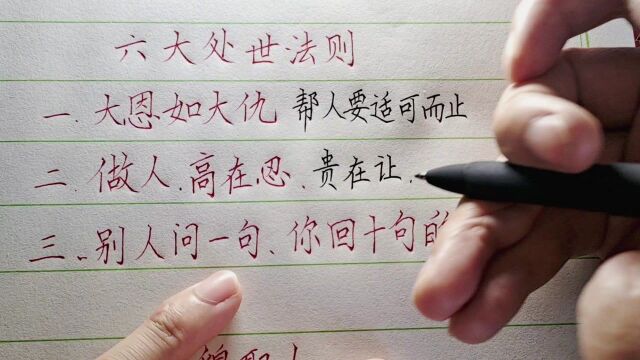 六大处世法则
一.大恩如大仇 帮人要适可而止
二.做人.高在忍.贵在让.
三.别人问一句、你回十句的